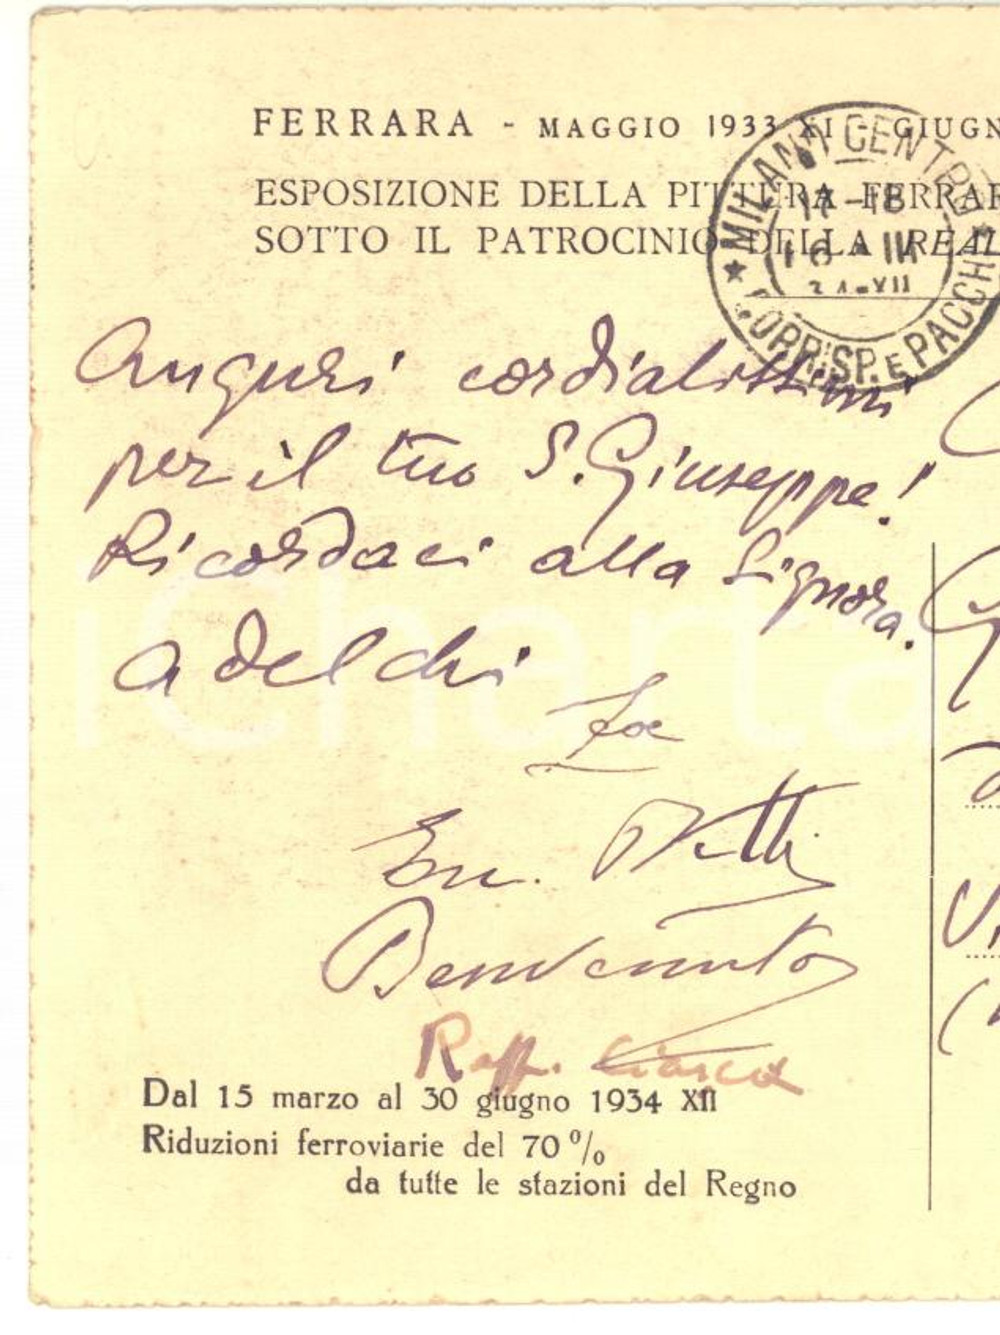 FERRARA - MAGGIO 1933 XI - GIUGN
ESPOSIZIONE DELLA PITTURA FERRAR
SOTTO IL PATROCINIO DELLA REAL
MILANO CENTRO
17-18
16 III
34-XII
CORRISP. E PACCHI
Auguri cordialissimi
per il tuo S. Giuseppe!
Ricordaci alla Signora.
Adelchi
Benvenuto
Raff. Ciasca
Dal 15 marzo al 30 giugno 1934 XII
Riduzioni ferroviarie del 70 %
da tutte le stazioni del Regno
iCharta